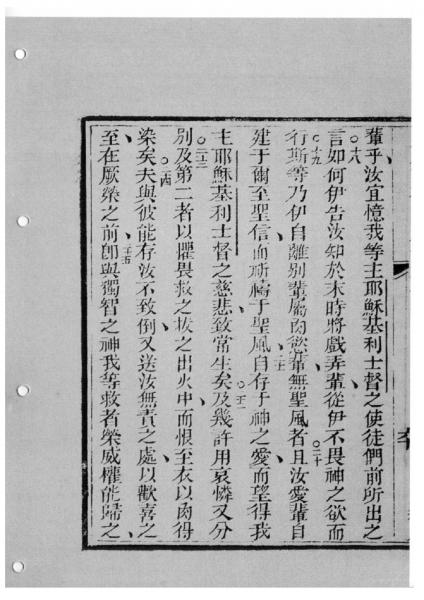 輩乎汝宜憶我等主耶穌基利士督之使徒們前所出之
言如何伊告汝知於末時將戲弄輩從伊不畏神之欲而
行斯等乃伊自離別輩屬肉慾輩無聖風者且汝愛輩自
建于爾至聖信而祈禱于聖風自存于神之愛而望得我
主耶穌基利士督之慈悲致常生矣及幾許用哀憐又分
別及第二者以懼畏救之扳之出火中而恨至衣以肉得
染矣夫與彼能存汝不致倒又送汝無責之處以歡喜之
至在厥榮之前卽與獨智之神我等救者榮威權能歸之